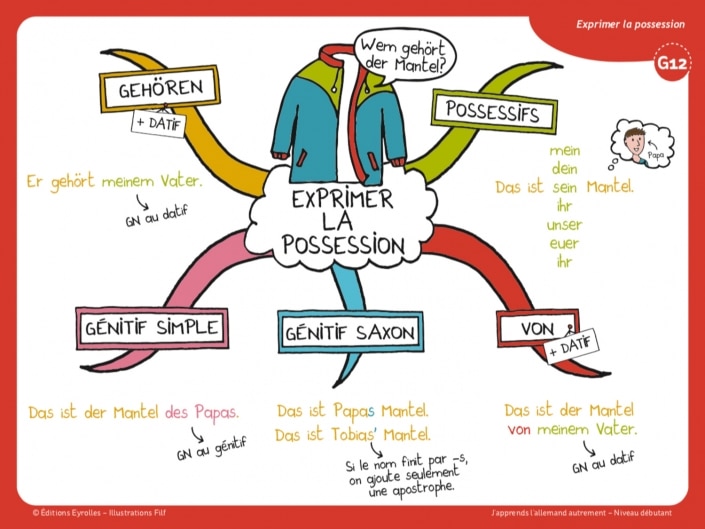 Exprimer la possession
G12
Wem gehört
der Mantel?
GEHÖREN
+ DATIF
POSSESSIFS
Papa
Er gehört meinem Vater.
GN au datif
mein
dein
Das ist sein Mantel.
ihr
unser
euer
ihr
EXPRIMER
LA
POSSESSION
GÉNITIF SIMPLE
GÉNITIF SAXON
VON
+ DATIF
Das ist der Mantel des Papas.
GN au génitif
Das ist Papas Mantel.
Das ist Tobias' Mantel.
Si le nom finit par -s,
on ajoute seulement
une apostrophe.
Das ist der Mantel
von meinem Vater.
GN au datif
© Éditions Eyrolles – Illustrations Filf
J'apprends l'allemand autrement – Niveau débutant